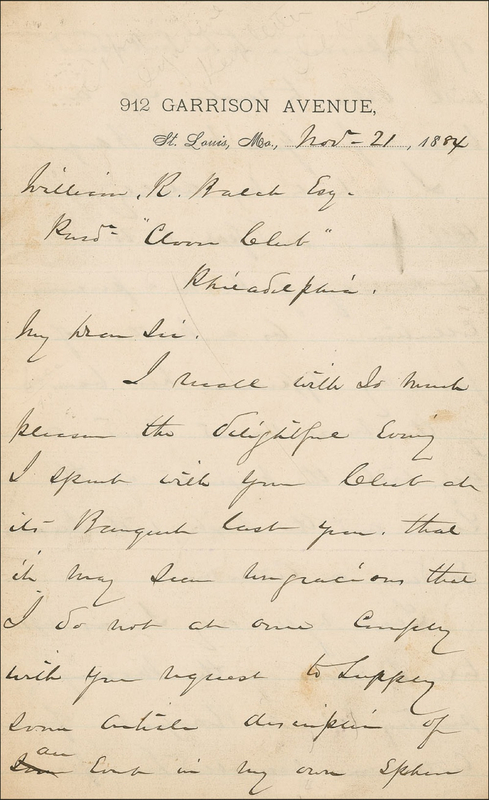 912 GARRISON AVENUE,
St. Louis, Mo., Nov- 21, 1884
William. R. Balch Esq-
Presdt "Clover Club"
Philadelphia.
My dear Sir.
I recall with so much
pleasure the delightful Evening
I spent with your Club at
its Banquet last year. that
it may seem ungracious that
I do not at once comply
with your request to supply
some article descriptive of
an Event in my own sphere